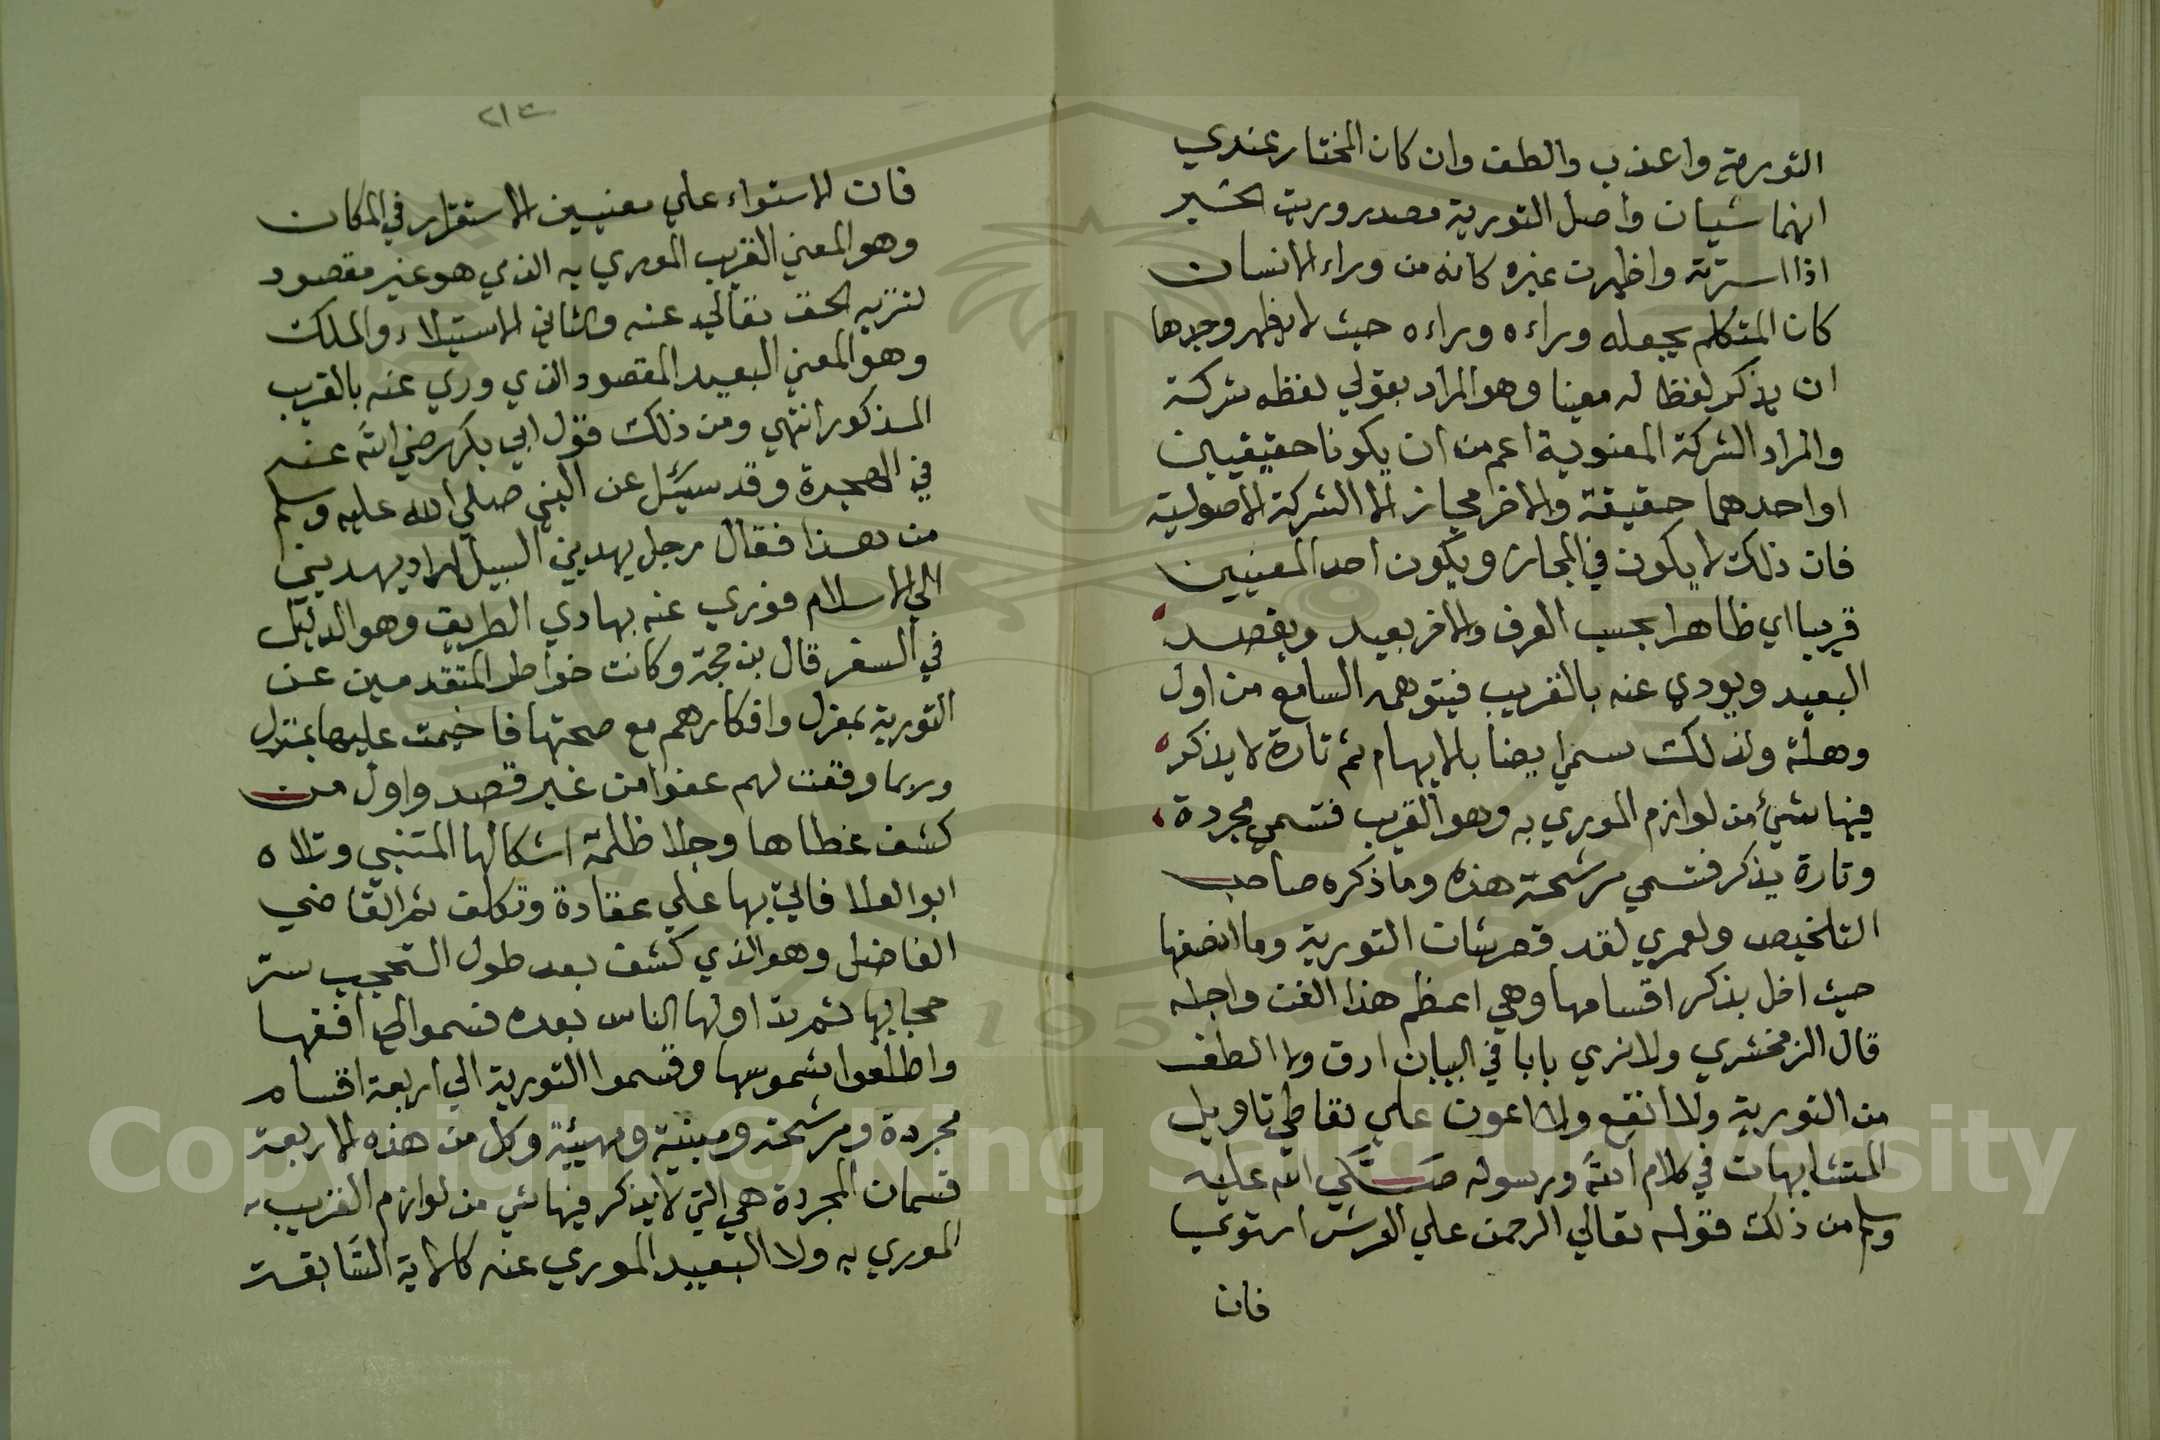 التورية واعذب والطف وان كان المختار عندي
انهما شيان واصل التورية مصدر وريت الخبر
اذا استرته واظهرت غيره كانه من وراء الانسان
كان المتكلم يجعله وراءه وراءه حيث لا يظهر وجدها
ان يذكر لفظا له معينا وهو المراد بقولي لفظه شركة
والمراد الشركة المعنوية اعم من ان يكونا حقيقيين
او احدهما حقيقة والاخر مجاز لا الشركة الاصولية
فان ذلك لا يكون في المجاز ويكون احد المعنيين
قريبا اي ظاهرا بحسب العرف والاخر بعيد ويقصد
البعيد ويودي عنه بالقريب فيتوهمه السامع من اول
وهلة ولذلك سمي ايضا بالايهام ثم تارة لا يذكر
فيها شئ من لوازم الموري به وهو القريب فتسمي مجردة
وتارة يذكر فتسمي مرشحة هذه وما ذكره صاحب
التلخيص ولعمري لقد قصر شان التورية وما انصفها
حيث اخل بذكر اقسامها وهي اعظم هذا الفن واجله
قال الزمخشري ولا نري بابا في البيان ادق ولا الطف
من التورية ولا انفع ولا اعون علي تعاطي تاويل
المتشابهات في كلام الله ورسوله صَلَّي الله عليه
وسلم من ذلك قوله تعالي الرحمن علي العرش استوي
فان
٢١٣
فان الاستواء علي معنيين الاستقرار في المكان
وهو المعني القريب الموري به الذي هو غير مقصود
لتنزيه الحق تعالي عنه والثاني الاستيلاء والملك
وهو المعني البعيد المقصود الذي وري عنه بالقريب
المذكور انتهي ومن ذلك قول ابي بكر رضي الله عنه
في الهجرة وقد سئل عن النبي صلي الله عليه وسلم
من هذا فقال رجل يهديني السبيل اراد يهديني
الي الاسلام فوري عنه بهادي الطريق وهو الدليل
في السفر قال بن حجة وكانت خواطر المتقدمين عن
التورية بمعزل وافكارهم مع صحتها فاخيمت عليها بمنزل
وربما وقعت لهم عفوا من غير قصد واول من
كشف غطاها وجلا ظلمة اشكالها المتنبي وتلاه
ابو العلا فاتي بها علي عقادة وتكلف ثم القاضي
الفاضل وهو الذي كشف بعد طول التحجب ستر
حجابها ثم تداولها الناس بعده فسموا الي افقها
واطلعوا شموسها وقسموا التورية الي اربعة اقسام
مجردة ومرشحة ومبنية ومهيئة وكل من هذه الاربعة
قسمان المجردة هي التي لا يذكر فيها شي من لوازم القريب
الموري به ولا البعيد الموري عنه كالاية السَّابقة
Copyright © King Saud University
195